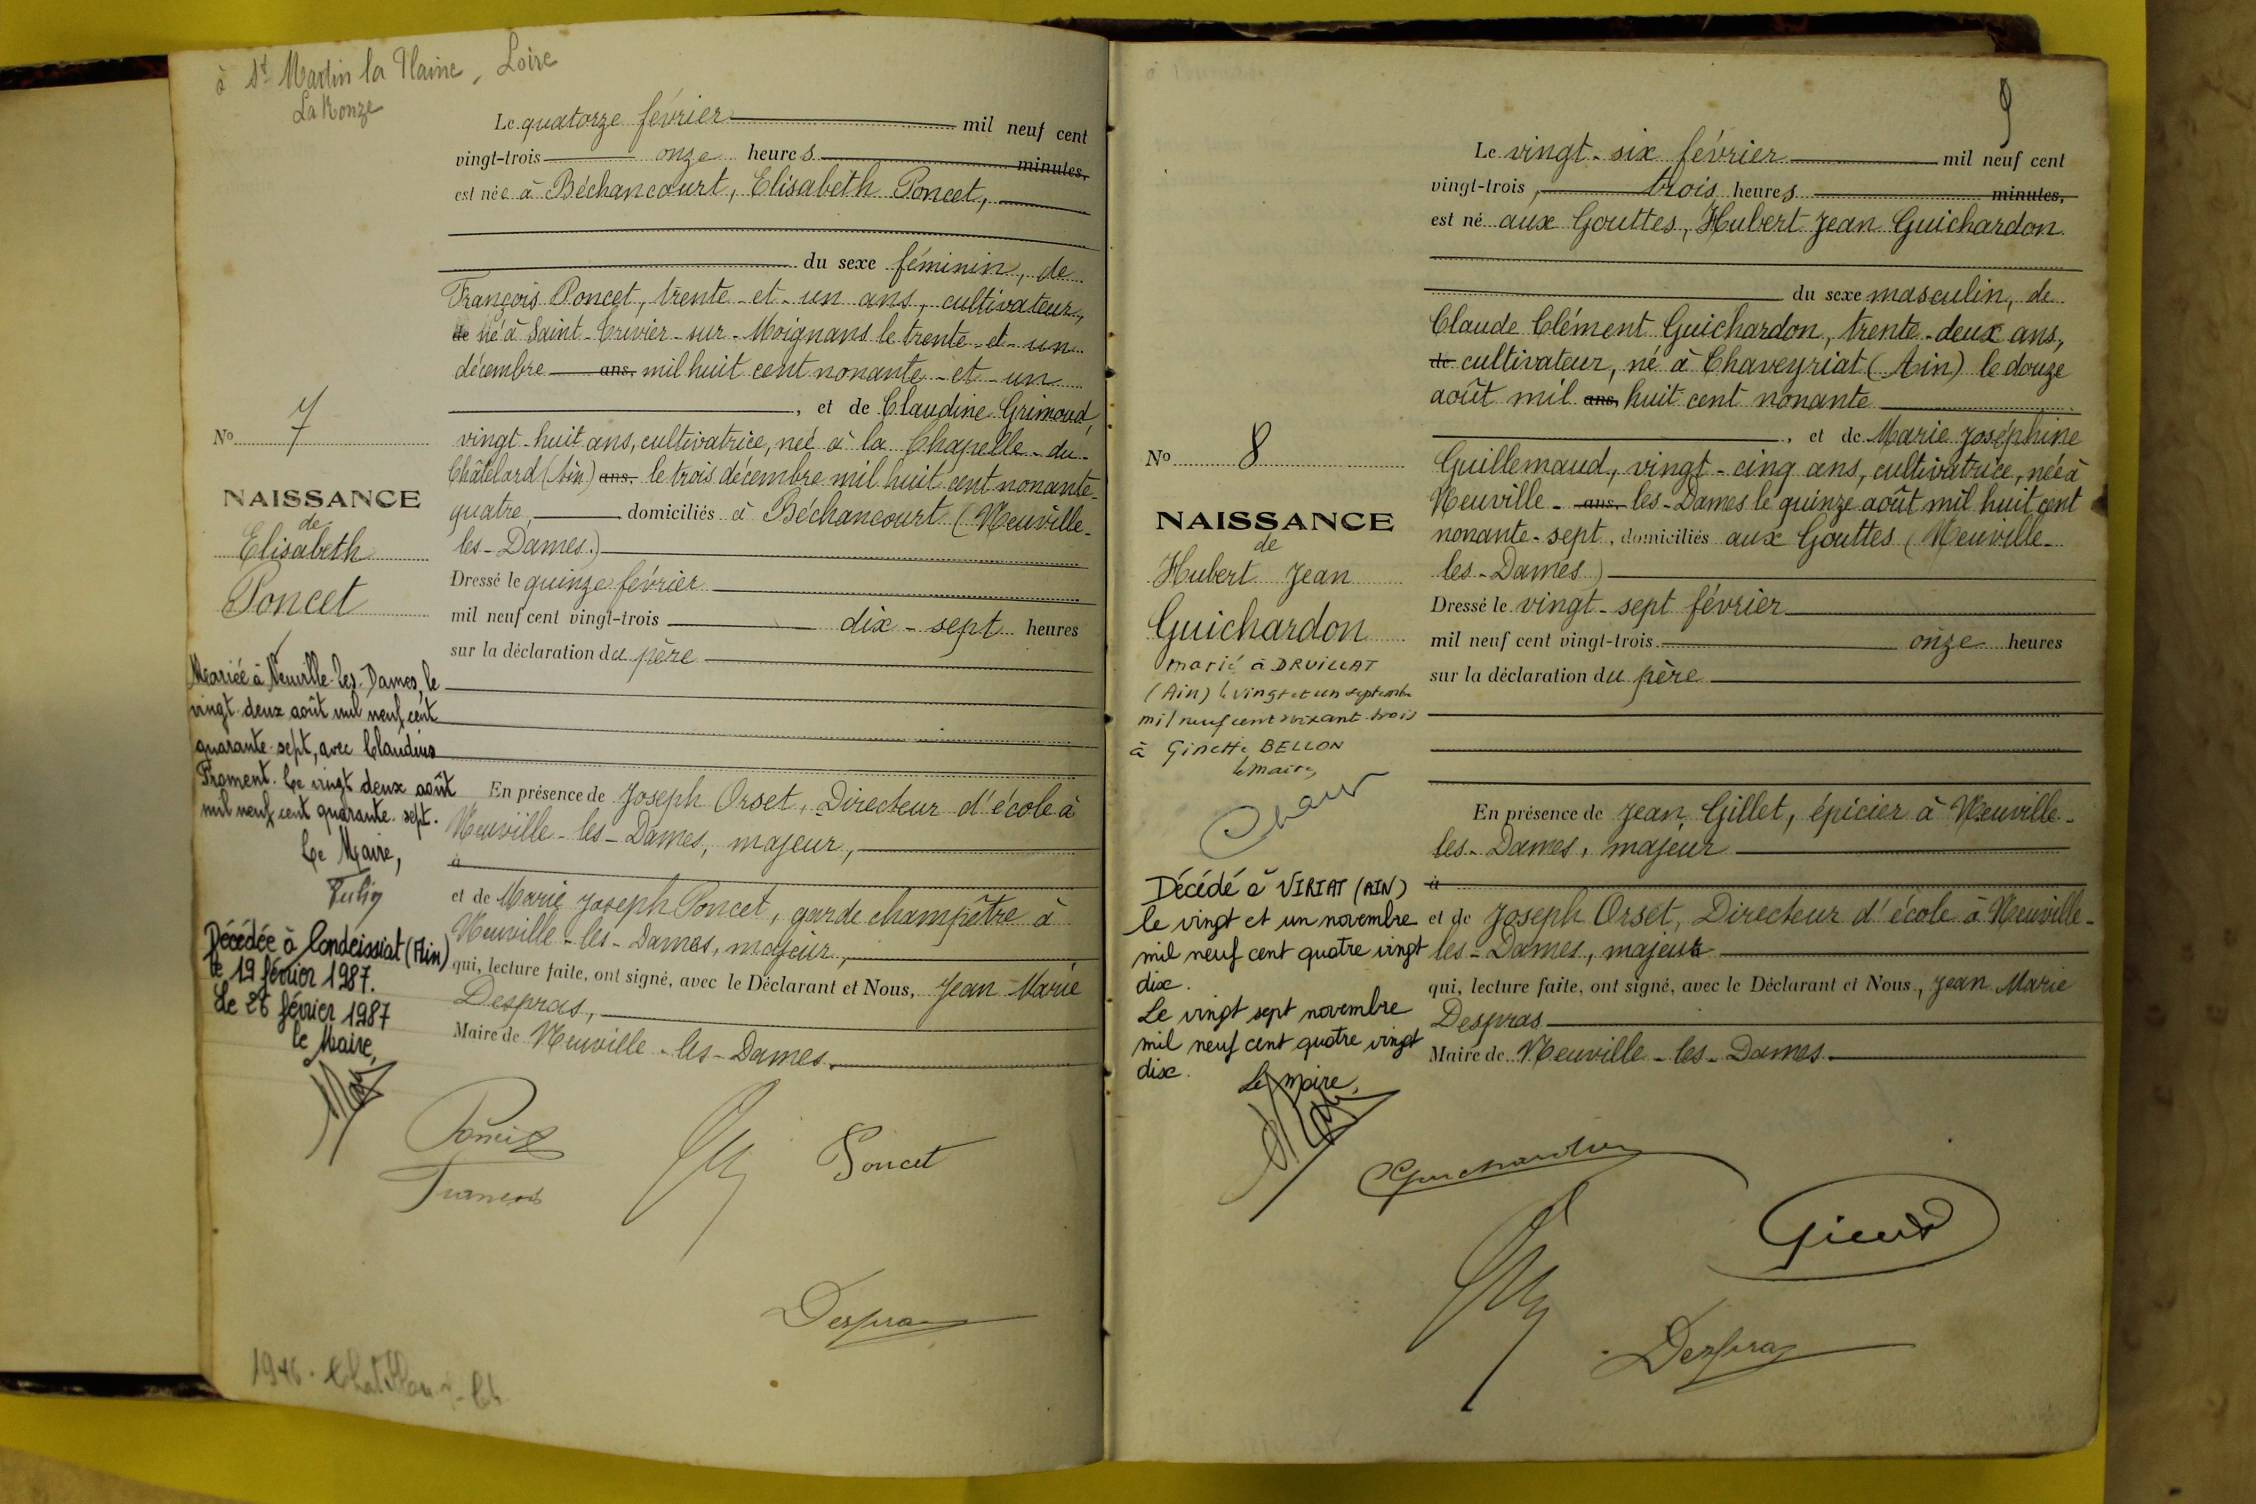 à St Martin la Plaine, Loire
La Ronze
Le quatorze février mil neuf cent
vingt-trois onze heures minutes,
est née à Béchancourt, Elisabeth Poncet,
du sexe féminin, de
François Poncet, trente-et-un ans, cultivateur,
de né à Saint-Trivier-sur-Moignans le trente-et-un
décembre ans, mil huit cent nonante-et-un
, et de Claudine Grimoud,
vingt-huit ans, cultivatrice, neé à la Chapelle-du-
Châtelard (Ain) ans, le trois décembre mil huit cent nonante-
quatre, domiciliés à Béchancourt (Neuville-
les-Dames.)
Dressé le quinze février
mil neuf cent vingt-trois dix-sept heures
sur la déclaration du père
En présence de Joseph Orset, Directeur d'école à
Neuville-les-Dames, majeur,
à
et de Marie Joseph Poncet, garde champêtre à
Neuville-les-Dames, majeur,
qui, lecture faite, ont signé, avec le Déclarant et Nous, Jean-Marie
Despras,
Maire de Neuville-les-Dames.
No 7
NAISSANCE
de
Elisabeth
Poncet
Mariée à Neuville-les-Dames, le
vingt-deux août mil neuf cent
quarante-sept, avec Claudius
Froment. Le vingt deux août
mil neuf cent quarante-sept.
Le Maire,
Décédée à Condeissiat (Ain)
le 19 février 1987.
Le 26 février 1987
le Maire,
Poncet
François
Poncet
Despras
1946.
9
Le vingt-six février mil neuf cent
vingt-trois, trois heures minutes,
est né aux Gouttes, Hubert Jean Guichardon
du sexe masculin, de
Claude Clément Guichardon, trente-deux ans,
de cultivateur, né à Chaveyriat (Ain) le douze
août mil ans, huit cent nonante
, et de Marie Joséphine
Guillemaud, vingt-cinq ans, cultivatrice, née à
Neuville- ans, les-Dames le quinze août mil huit cent
nonante-sept, domiciliés aux Gouttes (Neuville-
les-Dames)
Dressé le vingt-sept février
mil neuf cent vingt-trois onze heures
sur la déclaration du père
En présence de Jean Gillet, épicier à Neuville-
les-Dames, majeur
à
et de Joseph Orset, Directeur d'école à Neuville-
les-Dames, majeur
qui, lecture faite, ont signé, avec le Déclarant et Nous, Jean Marie
Despras
Maire de Neuville-les-Dames
No 8
NAISSANCE
de
Hubert Jean
Guichardon
marié à DRUILLAT
(Ain) le vingt et un septembre
mil neuf cent soixant-trois
à Ginette BELLON
le maire,
Décédé à VIRIAT (AIN)
le vingt et un novembre
mil neuf cent quatre vingt
dix.
Le vingt sept novembre
mil neuf cent quatre vingt
dix.
Le maire,
Guichardon
Gillet
Despras